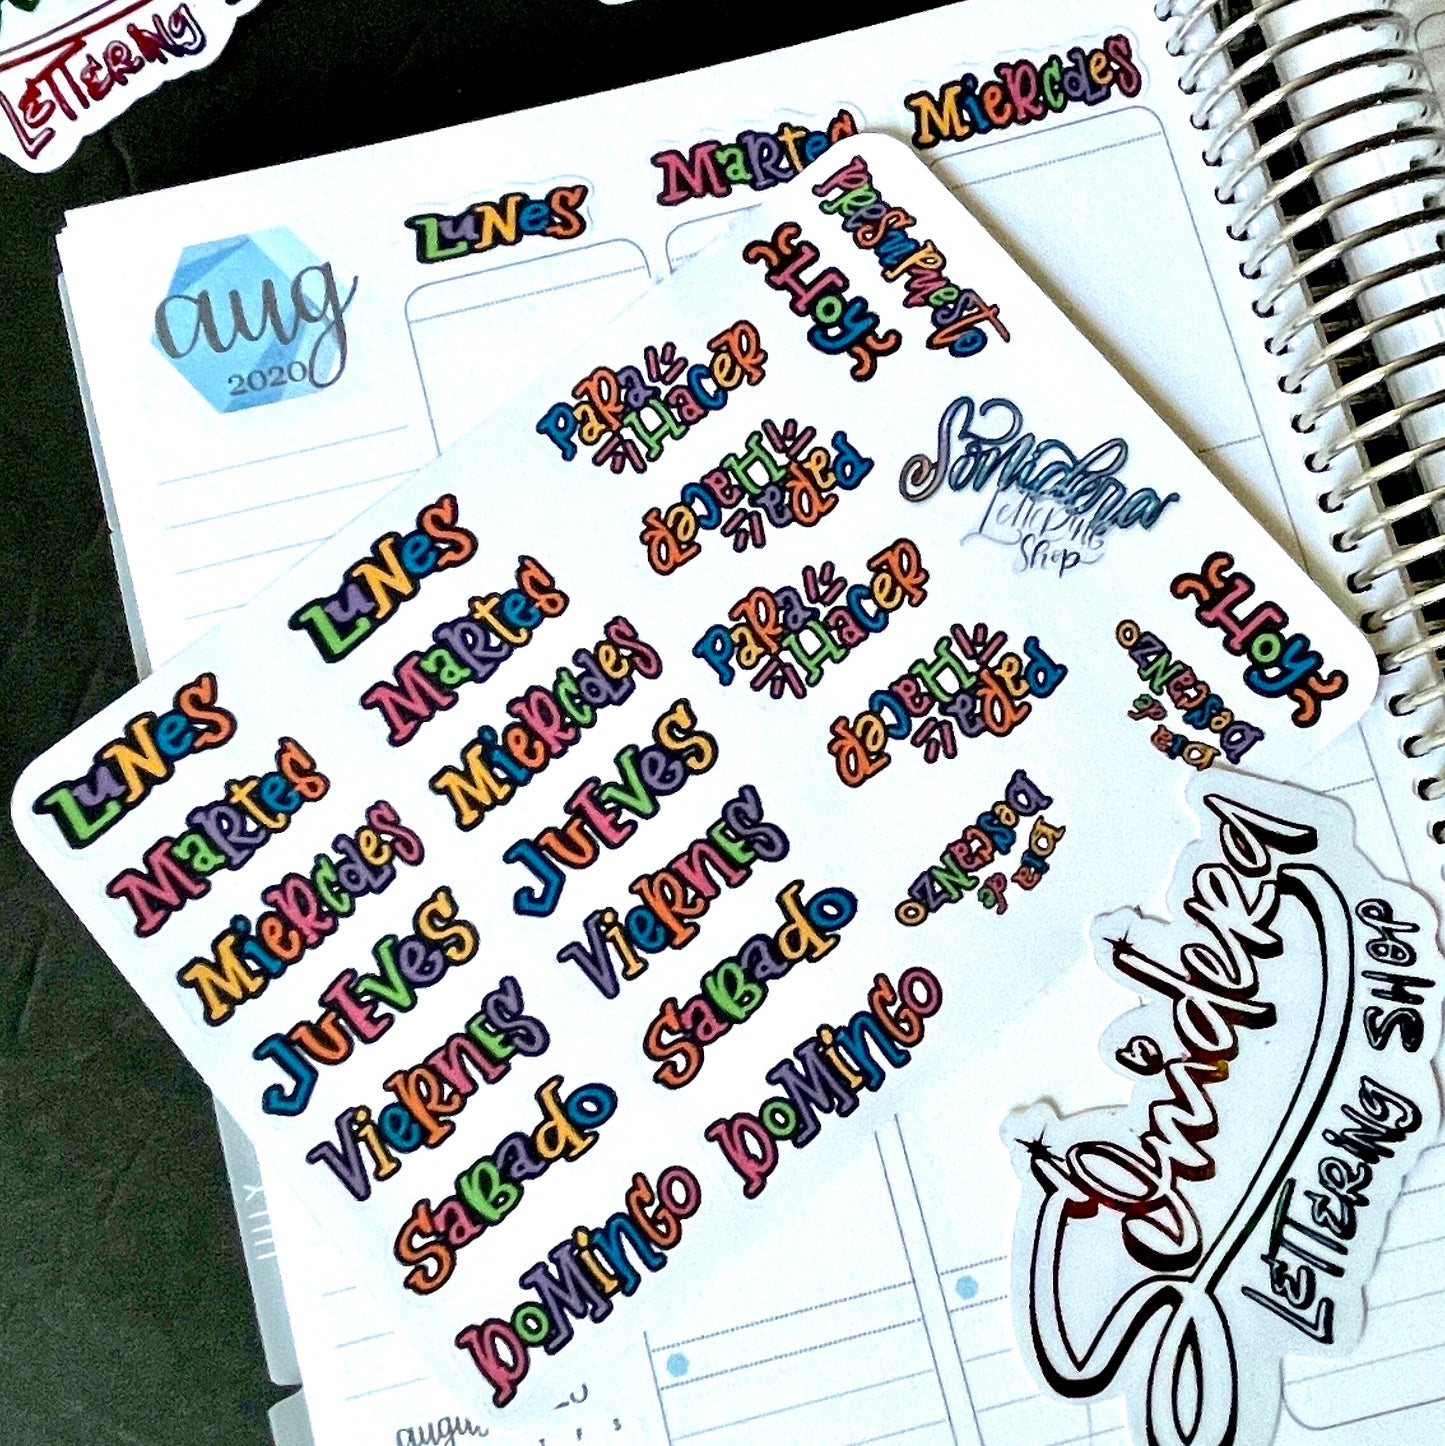 LETTERING
aug
2020
Lunes
Martes
Miercoles
Presupuesto
Hoy
Para
Hacer
Para
Hacer
Sonidera
Lettering
Shop
Para
Hacer
Para
Hacer
Hoy
Dia
de
Descanzo
Dia
de
Descanzo
Lunes
Martes
Miercoles
Jueves
Viernes
Sabado
Domingo
Lunes
Martes
Miercoles
Jueves
Viernes
Sabado
Domingo
Sonidera
LETTERING SHOP
JULY